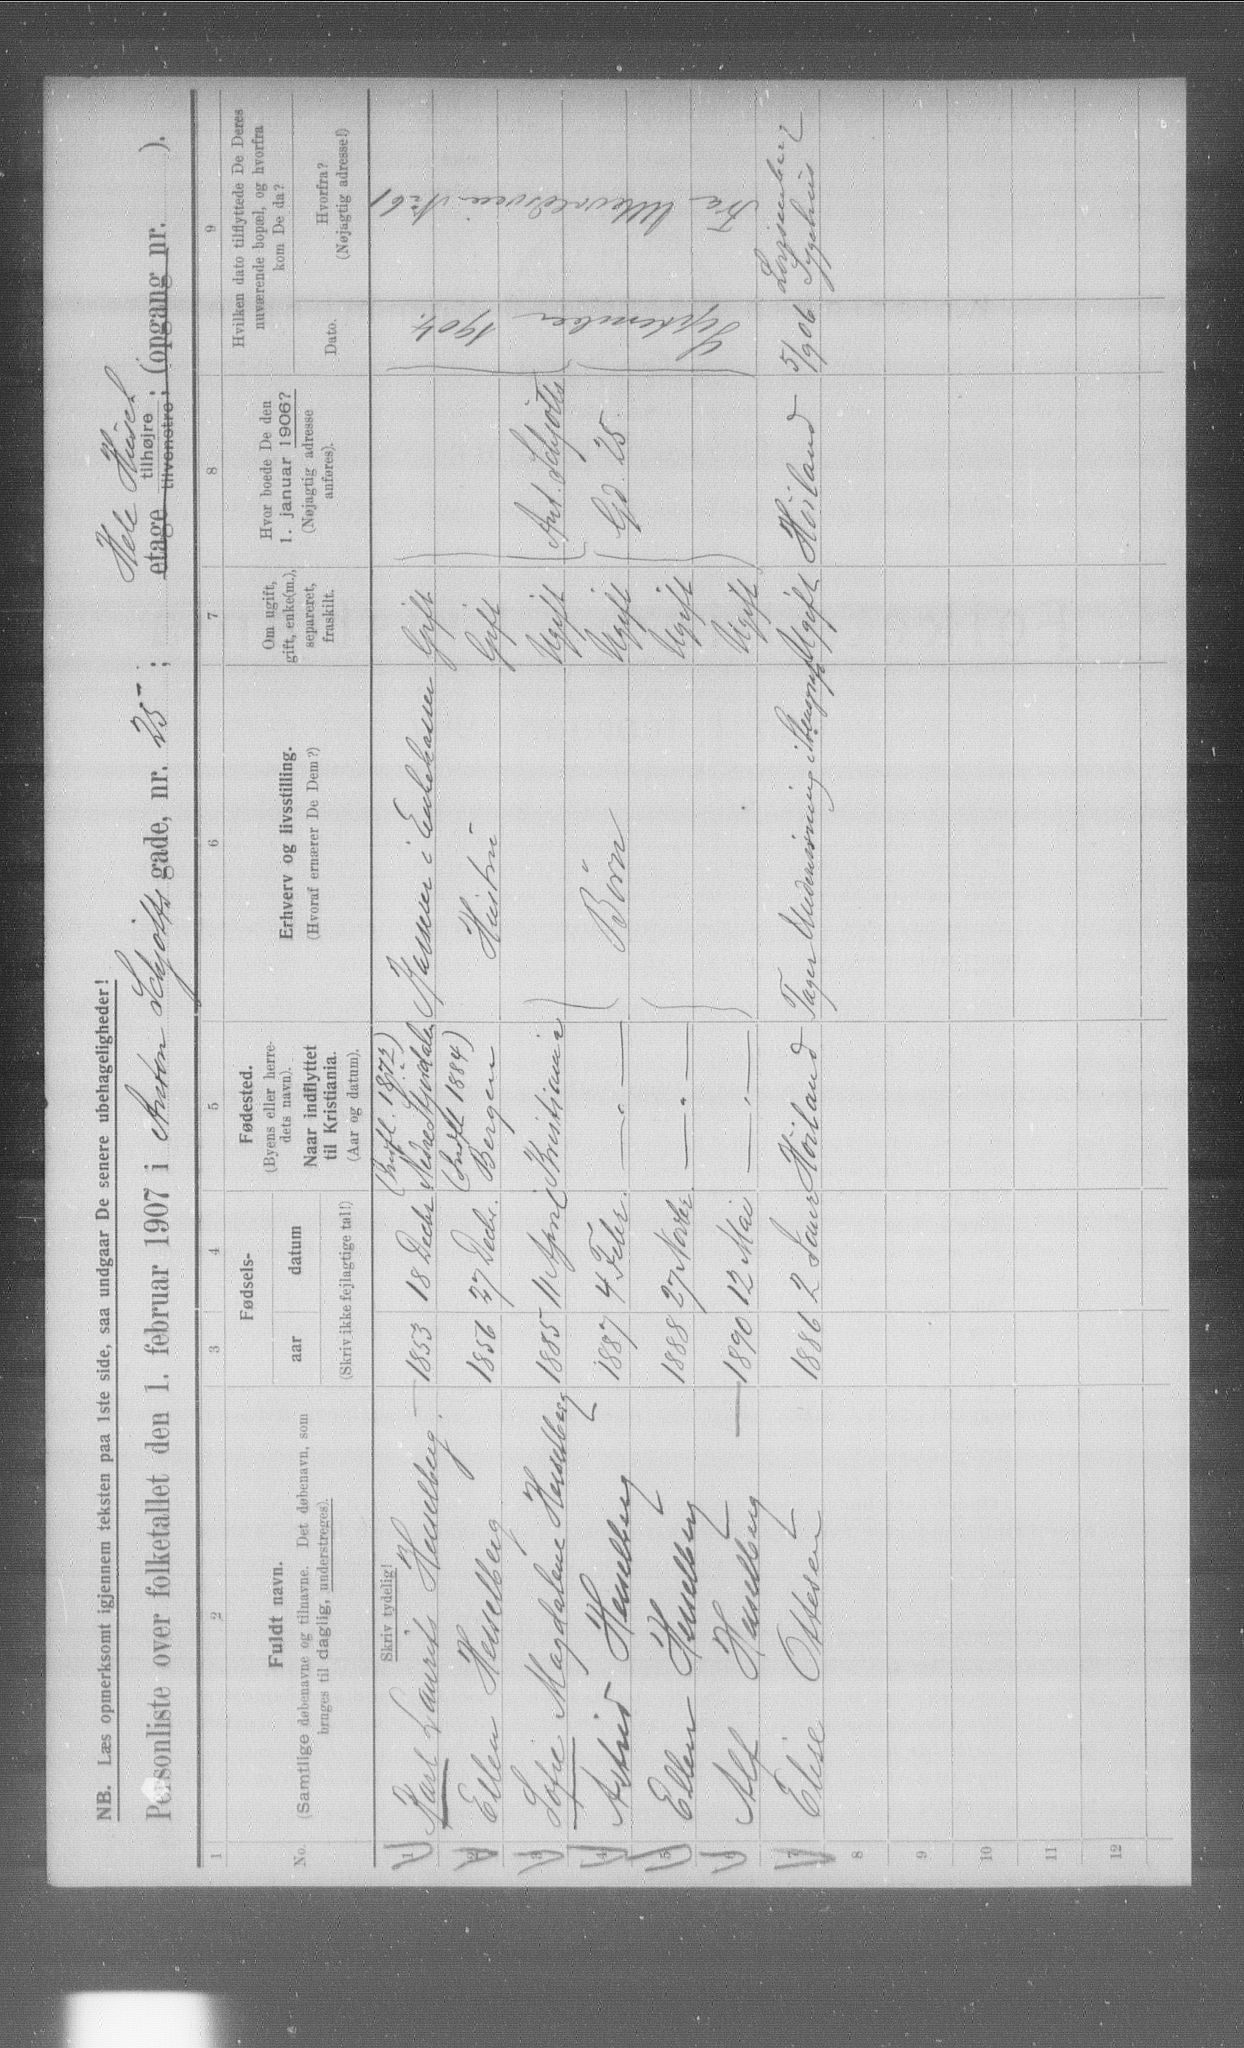 NB. Læs opmerksomt igjennem teksten paa 1ste side, saa undgaar De senere ubehageligheder!
Hele Huset
Personliste over folketallet den 1. februar 1907 i Anton Schjøtts gade, nr. 25; etage tilhøjre tilvenstre; (opgang nr. ).
1 2 3 4 5 6 7 8 9
No.
Fuldt navn.
(Samtlige døbenavne og tilnavne. Det døbenavn, som
bruges til daglig, understreges).
Fødsels-
aar datum
(Skriv ikke fejlagtige tal!)
Fødested.
(Byens eller herre-
dets navn).
Naar indflyttet
til Kristiania.
(Aar og datum).
Erhverv og livsstilling.
(Hvoraf ernærer De Dem?)
Om ugift,
gift, enke(m.),
separeret,
fraskilt.
Hvor boede De den
1. januar 1906?
(Nøjagtig adresse
anføres).
Hvilken dato tilflyttede De Deres
nuværende bopæl, og hvorfra
kom De da?
Dato.
Hvorfra?
(Nøjagtig adresse!)
Skriv tydelig!
1 Karl Laurits Hesselberg. 1853 18 Decbr (Indfl. 1872) Nedre Stjørdalen Kasserer i Enkekassen Gift
2 Ellen Hesselberg 1856 27 Decbr. (Indfl 1884) Bergen Hustru Gift
3 Sofie Magdalene Hesselberg 1885 11 April Kristiania Ugift Ant. Schjøtts
4 Astrid Hesselberg 1887 4 Febr. — " — Børn Ugift Gd. 25.
5 Ellen Hesselberg 1888 27 Novbr. — " — Ugift
6 Alf Hesselberg 1890 12 Mai — " — Ugift
September 1904. Fra Ullevoldsveien No 61
7 Elise Ottesen 1886 2 Januar Høiland Tager Undervisning i Ugift Høiland 5/9 06 Lovisenberg Sygehus
8
9
10
11
12